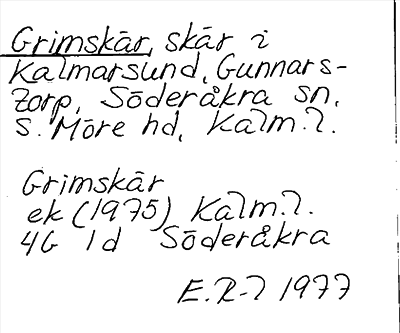 Grimskär, skär i
Kalmarsund, Gunnars-
torp, Söderåkra sn,
S. Möre hd, Kalm. l.
Grimskär
ek (1975) Kalm. l.
4G 1d Söderåkra
E. R-l 1977